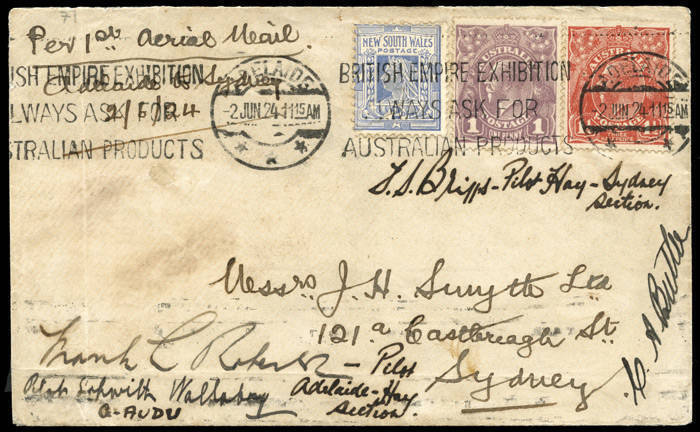 71
Per 1st Aerial Mail
Adelaide to Sydney
2/6/24
ISH EMPIRE EXHIBITION
LWAYS ASK FOR
STRALIAN PRODUCTS
ADELAIDE
-2 JUN.24-1115AM
NEW SOUTH WALES
POSTAGE
AUSTRALIA
POSTAGE
1 ONE PENNY 1
AUSTRALIA
POSTAGE
BRITISH EMPIRE EXHIBITION
LWAYS ASK FOR
AUSTRALIAN PRODUCTS
ADELAIDE
-2 JUN.24-1115AM
F.S. Briggs - Pilot Hay - Sydney
section.
Messrs J. H. Smyth Ltd
121a Castlereagh St.
Sydney
Frank L Roberts - Pilot
Adelaide - Hay
section.
G-AUDU